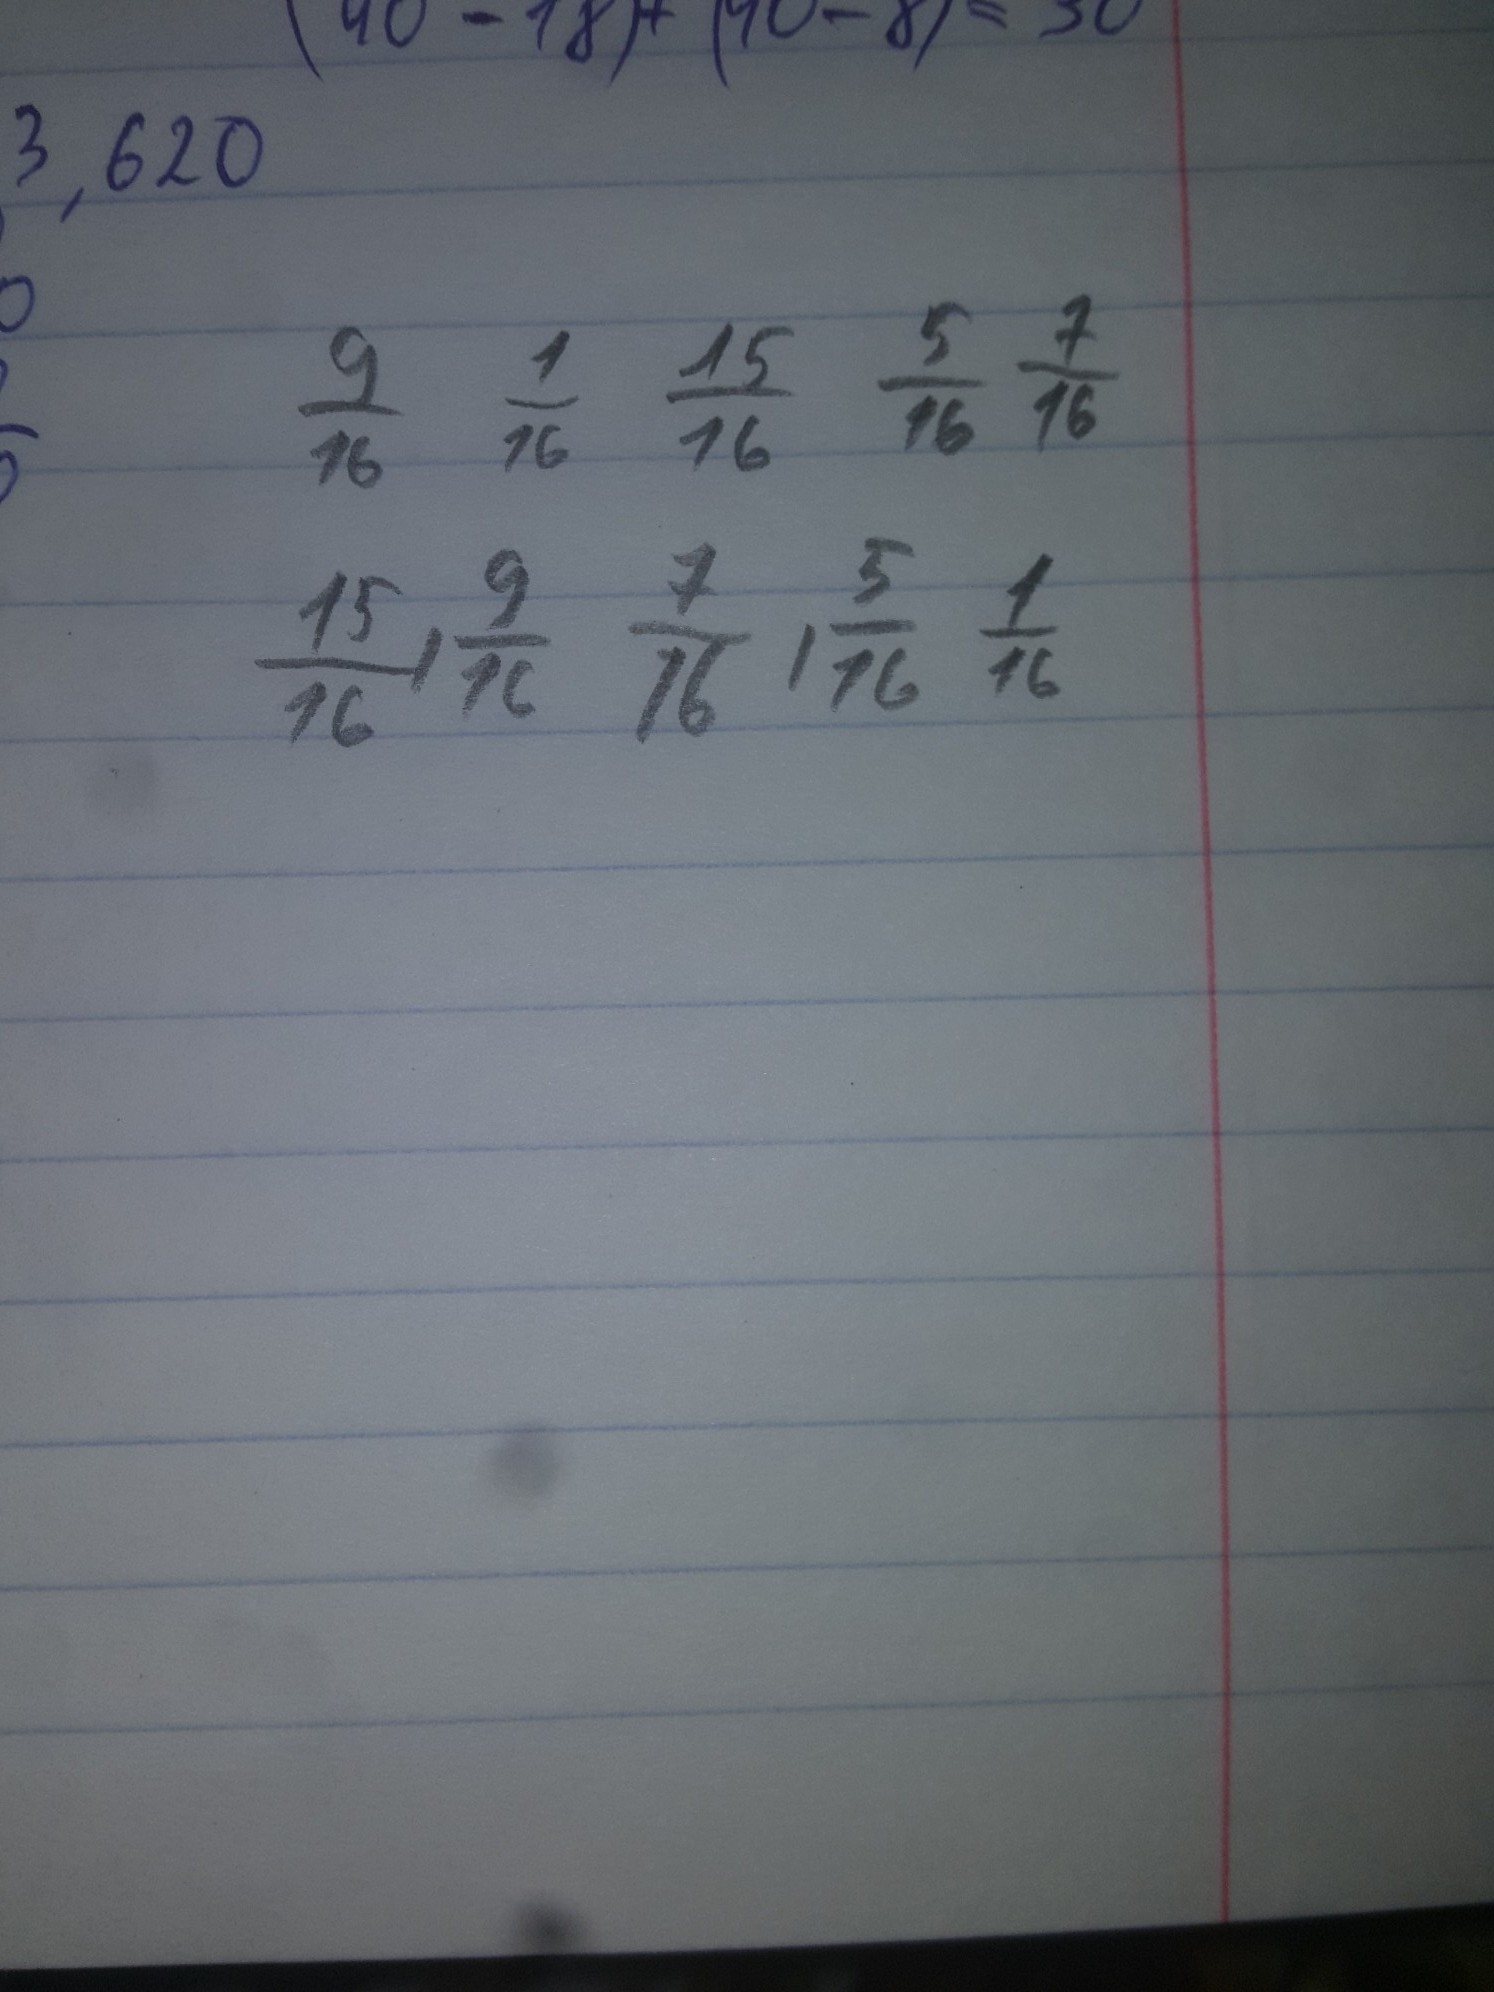 (40 - 18) + (40 - 8) = 30
3,620
9/16 1/16 15/16 5/16 7/16
15/16, 9/16 7/16, 5/16 1/16